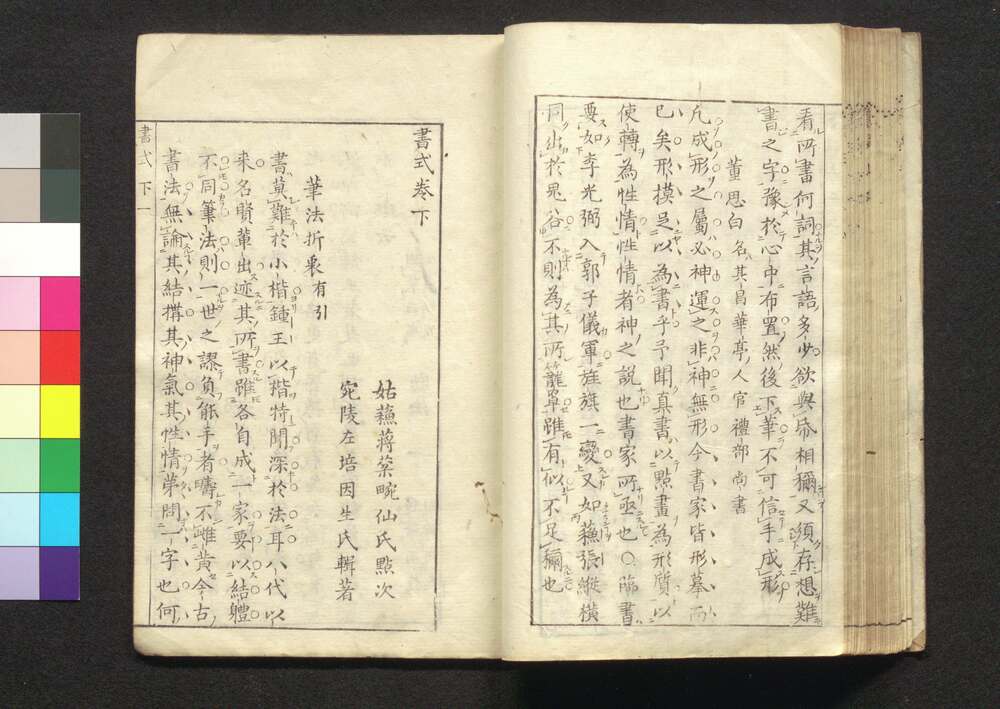 看所書何詞其言語多少欲與帋相稱又須存想難
書之字豫於心中布置然後下筆不可信手成形
董思白名其昌華亭人官禮部尚書
凡成形之屬必神運之非神無形今書家皆形摹而
已矣形模足以為書乎予聞真書以點畫為形質以
使轉為性情性情者神之說也書家所亟也○臨書
要如李光弼入郭子儀軍旌旗一變又如蘓張縱橫
同出於鬼谷不則為其所籠罩雖有似不足稱也
書式卷下
姑蘓蔣棻畹仙氏點次
宛陵左培因生氏輯著
筆法折衷有引
書莫難於小楷鍾王以楷特聞深於法耳八代以
来名賢輩出迹其所書雖各自成一家要以結體
不同筆法則一世之謬負能手者疇不雌黄今古
書法無論其結搆其神氣其性情第問一字也何
書式 下 一